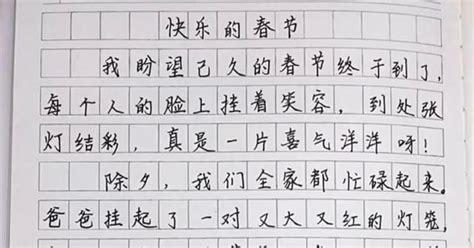 快乐的春节
我盼望己久的春节终于到了,
每个人的脸上挂着笑容，到处张
灯结彩，真是一片喜气洋洋呀!
除夕，我们全家都忙碌起来。
爸爸挂起了一对又大又红的灯笼,